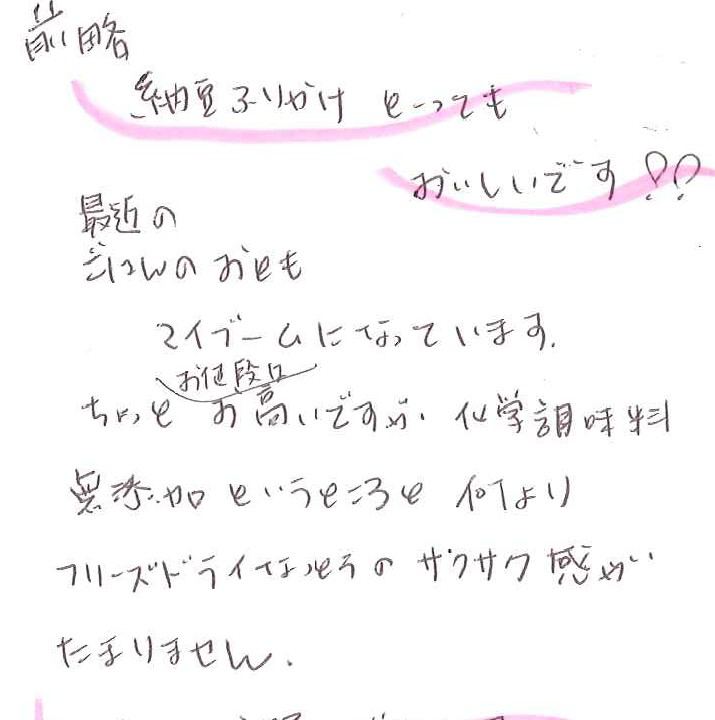 前略
納豆ふりかけ とっても
おいしいです!!
最近の
ごはんのおとも
マイブームになっています.
お値段は
ちょっと お高いですが、化学調味料
無添加というところと 何より
フリーズドライなっとうの サクサク感が
たまりません.